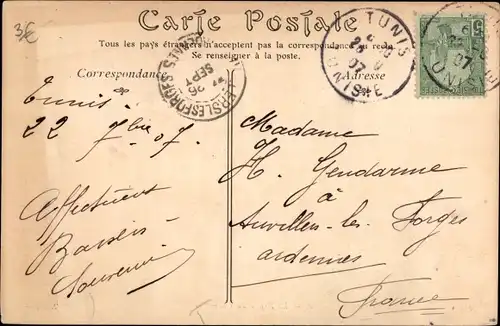 3€
Carte Postale
Tous les pays étrangers n'acceptent pas la correspondance au recto.
Se renseigner à la poste.
Correspondance
Adresse
TUNIS
TUNISIE
SEPT
Tunis
22 7bre 07.
Affectueux
Baisers
Souvenir
Madame
H. Gendarme
à
Auvillers-les-Forges
ardennes
France